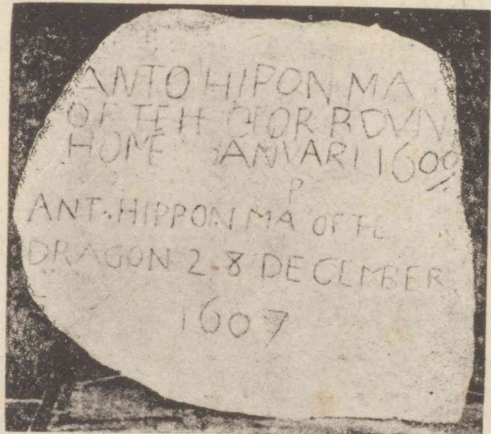 ANTO HIPON MA
OF TEH CTOR BOVN
HOME IANVARI 1600
P
ANT·HIPPON MA OF TE
DRAGON 2 8 DECEMBER
1607